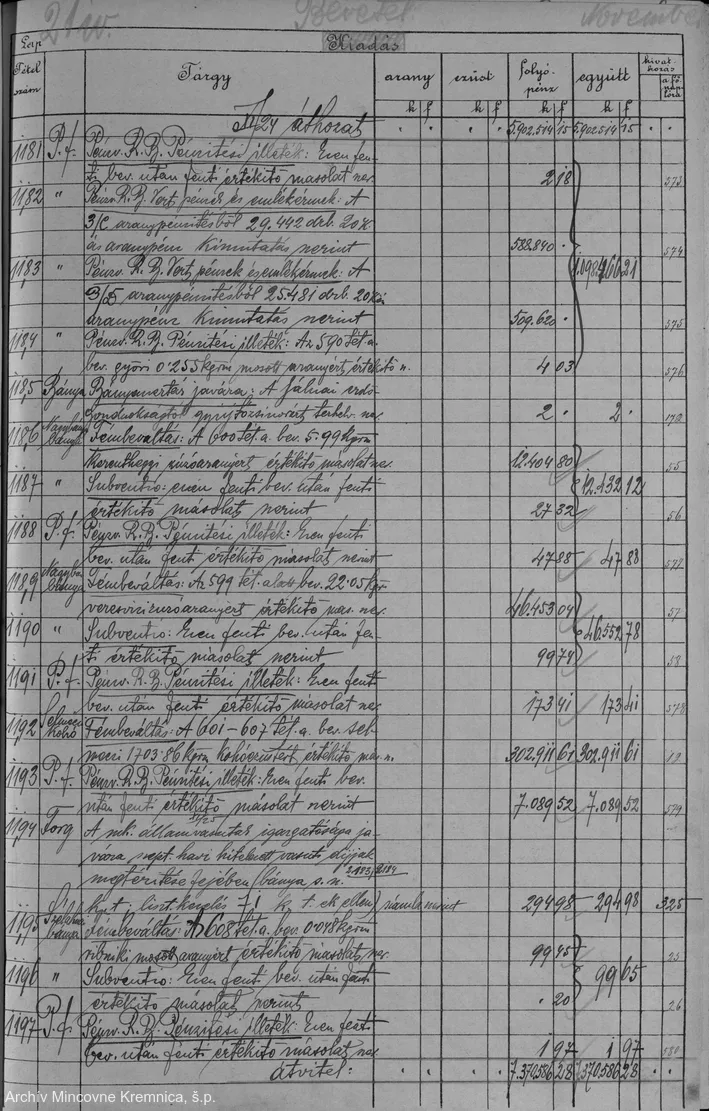 21 w. Bevétel November
Lap Kiadás
Tétel szám Tárgy arany ezüst folyó pénz együtt hivatkozás a fő
k f k f k f k f
A/24 áthozat 5,902.514 15 5.902.514 15
1181 P.f. Pénzv. R. B. Pénzitési illeték: Ezen fen-
ti bev. után fenti értékitő másolat sze. 2 18 573
1182 " Pénzv. R. B. Vert pénzek es emlékérmek: A
3/C aranypénzitésből 29.442 drb. 20 K
ás aranypénz Kimutatás szerint 588.840 574
1183 " Pénzv. R. B. Vert pénzek es emlékérmek: A 1.098.466 21
3/D aranypénzitésből 25.481 drb. 20 K
aranypénz Kimutatás szerint 509.620 575
1184 " Pénzv. R. B. Pénzitési illeték: Az 590 tét. a.
bev. győri 0.255 kgrm mosott aranyért értékitő 4 03 576
1185 Bánya Bányapénztár javára: A
2 2 172
1186 Nagybánya Fémbeváltás: A 600 tét. a. bev. 5.99 kgrm
értékitő másolat sze. 12.404 80 55
1187 " Subventio: ezen fenti bev. után fenti 12.432 12
értékitő másolat szerint 27 32 56
1188 P.f. Pénzv. R. B. Pénzitési illeték: Ezen fenti
bev. után fenti értékitő másolat szerint 47 88 47 88 577
1189 Nagybánya Fémbeváltás: Az 599 tét. alatt bev. 22.05 kgrm
veresvizi zúzóaranyért értékitő mas. sze. 46.453 04 57
1190 " Subventio: Ezen fenti bev. után fen- 46.552 78
ti értékitő másolat szerint 99 74 58
1191 P.f. Pénzv. R. B. Pénzitési illeték: Ezen fenti
bev. után fenti értékitő másolat sze. 173 41 173 41 578
1192 Selmecz kohó Fémbeváltás: A 601-607 tét. a. bev. sel-
meczi 1703.86 kgrm kohóezüstért értékitő mas. sz. 302.911 61 302.911 61 19
1193 P.f. Pénzv. R. B. Pénzitési illeték: Ezen fenti bev.
után fenti értékitő másolat szerint 7.089 52 7.089 52 579
1194 Forg A mk. államvasutak igazgatósága ja-
vára szept. havi hitelezett vasuti díjjak
megtéritése fejében (bánya s. n. 2.183/2.184
liszt kezelés 71 k. t. ek ellen) számla szerint 294 98 294 98 325
1195 bánya Fémbeváltás: A 608 tét. a. bev. 0.048 kgrm
mosott aranyért értékitő másolat sze. 99 45 25
1196 " Subventio: Ezen fenti bev. után fenti 99 65
értékitő másolat szerint 20 26
1197 P.f. Pénzv. R. B. Pénzitési illeték: Ezen fenti
bev. után fenti értékitő másolat sze. 1 97 1 97 580
átvitel: 7.370.586 28 7.370.586 28
Archív Mincovne Kremnica, š.p.